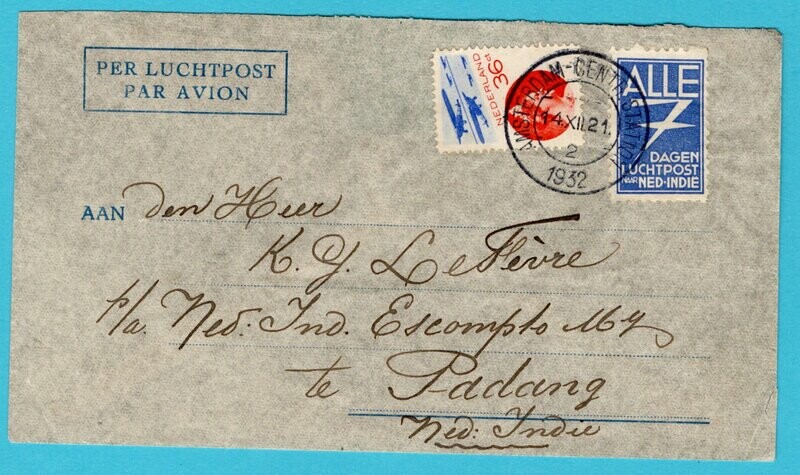 PER LUCHTPOST
PAR AVION
NEDERLAND
36 ct
AMSTERDAM-CENTR.STATION
14.XII.21.
2
1932
ALLE
7
DAGEN
LUCHTPOST
NAAR NED-INDIË
AAN den Heer
K. Y. Le Fèvre
p/a. Ned: Ind. Escompto My
te Padang
Ned: Indië